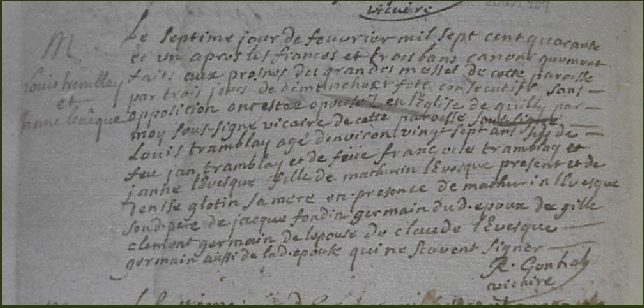 vicaire
M
Louis tremblay
et
Janne leveque
Le septime jour de feuvrier mil sept cent quarante
et un apres les fiances et trois bans canoniquement
faits aux prosnes des grandes messes de cette paroisse
par trois jours de dimanche et fete consecutifs sans
opposition ont estes epousés en l'eglise de quilly par
moy sous-signé vicaire de cette paroisse soussigné
Louis tramblay agé denviron vingt sept ans fils de
feu jan tramblay et de feüe francoise tramblay et
janne levesque fille de mathurin levesque present et de
glotin sa mere en presence de mathurin levesque
sond. pere de jacque fondin germain dud. epoux de gille
clement germain de lepouse de claude levesque
germain aussi de lad. epouse qui ne scavent signer
vicaire